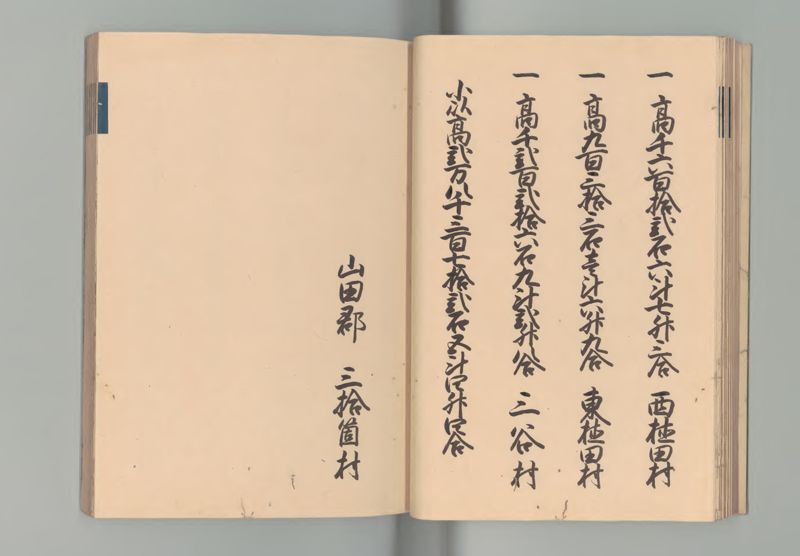 一 高千六百拾弐石六斗七升三合 西植田村
一 高九百三拾三石壱斗六升九合 東植田村
一 高千弐百弐拾六石九斗弐升八合 三谷村
小以高弐万八千三百七拾弐石五斗四升四合
山田郡 三拾箇村